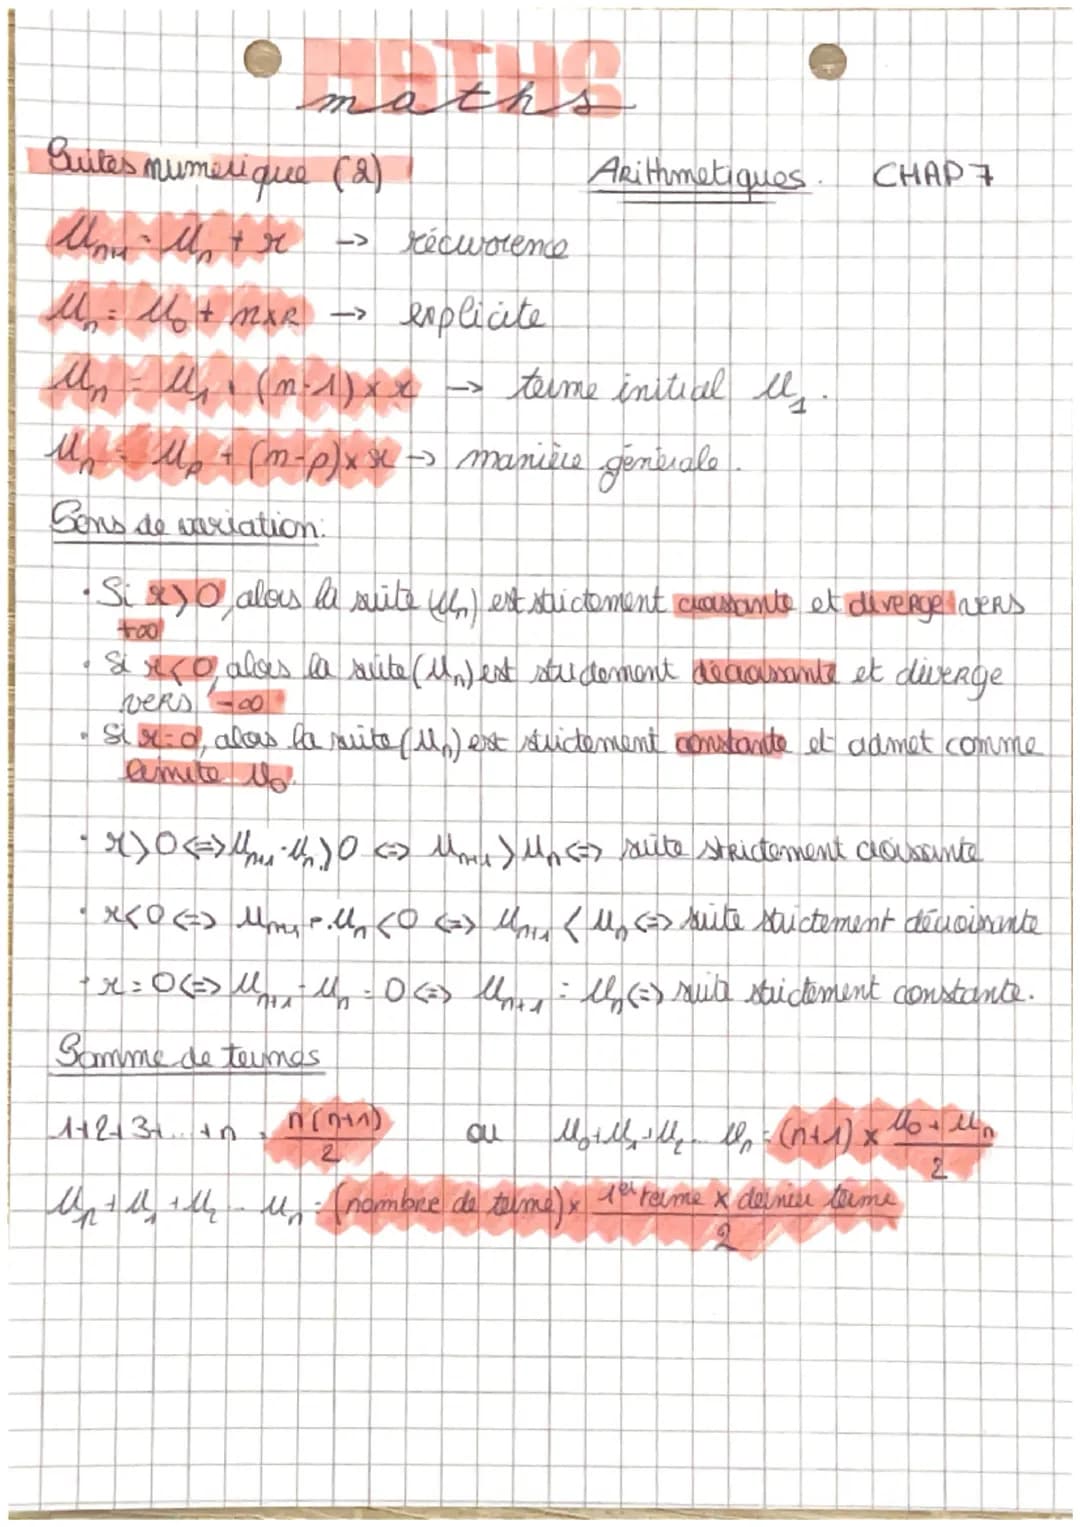 MATHS
maths
Suites numerique (2) Arithmetiques. CHAP 7
Un+1 = Un + r -> récurrence
Un = U0 + n×R -> explicite
Un = U1 + (n-1)×r -> terme initial U1.
Un = Up + (n-p)×r -> manière générale.
Sens de variation:
• Si r>0, alors la suite (Un) est strictement croissante et diverge vers
+∞
• Si r<0, alors la suite (Un) est strictement décroissante et diverge
vers -∞
• Si r=0, alors la suite (Un) est strictement constante et admet comme
limite U0.
• r>0 <=> Un+1-Un>0 <=> Un+1>Un <=> suite strictement croissante
• r<0 <=> Un+1-Un<0 <=> Un+1<Un <=> suite strictement décroissante
• r=0 <=> Un+1-Un=0 <=> Un+1=Un <=> suite strictement constante.
Somme de termes
1+2+3+...+n = n(n+1)/2 ou U0+U1+U2... Un = (n+1) × U0+Un/2
+U1+U2... Un = (nombre de terme)× 1er terme × dernier terme/2